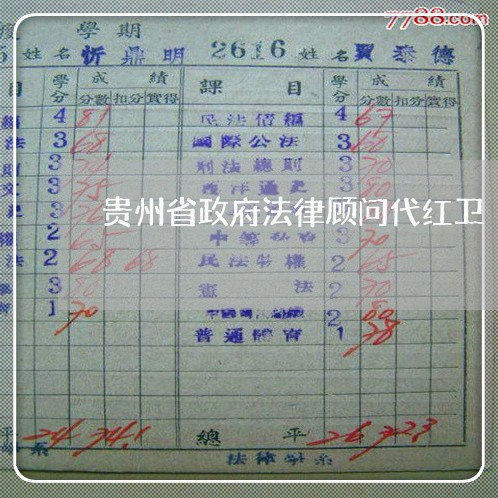 7788.com
學期
5 姓名 忻鼎明 2616 姓名 賈泰德
目 學分 成績 課目 學分 成績
分數 扣分 實得 分數 扣分 實得
4 81 民法債編 4 67
法 3 68 國際公法 3 60
3 刑法總則 3 70
文 3 75 西洋通史 3 80
3
貴州省政府法律顾问代红卫
權 2 65 3 70
法 2 68 68 民法物權 2 65
3 80 憲法 2 70
1 70 2 80
普通體育 1 78
平 24 74.1 總平 26 72.3
系 法律學系